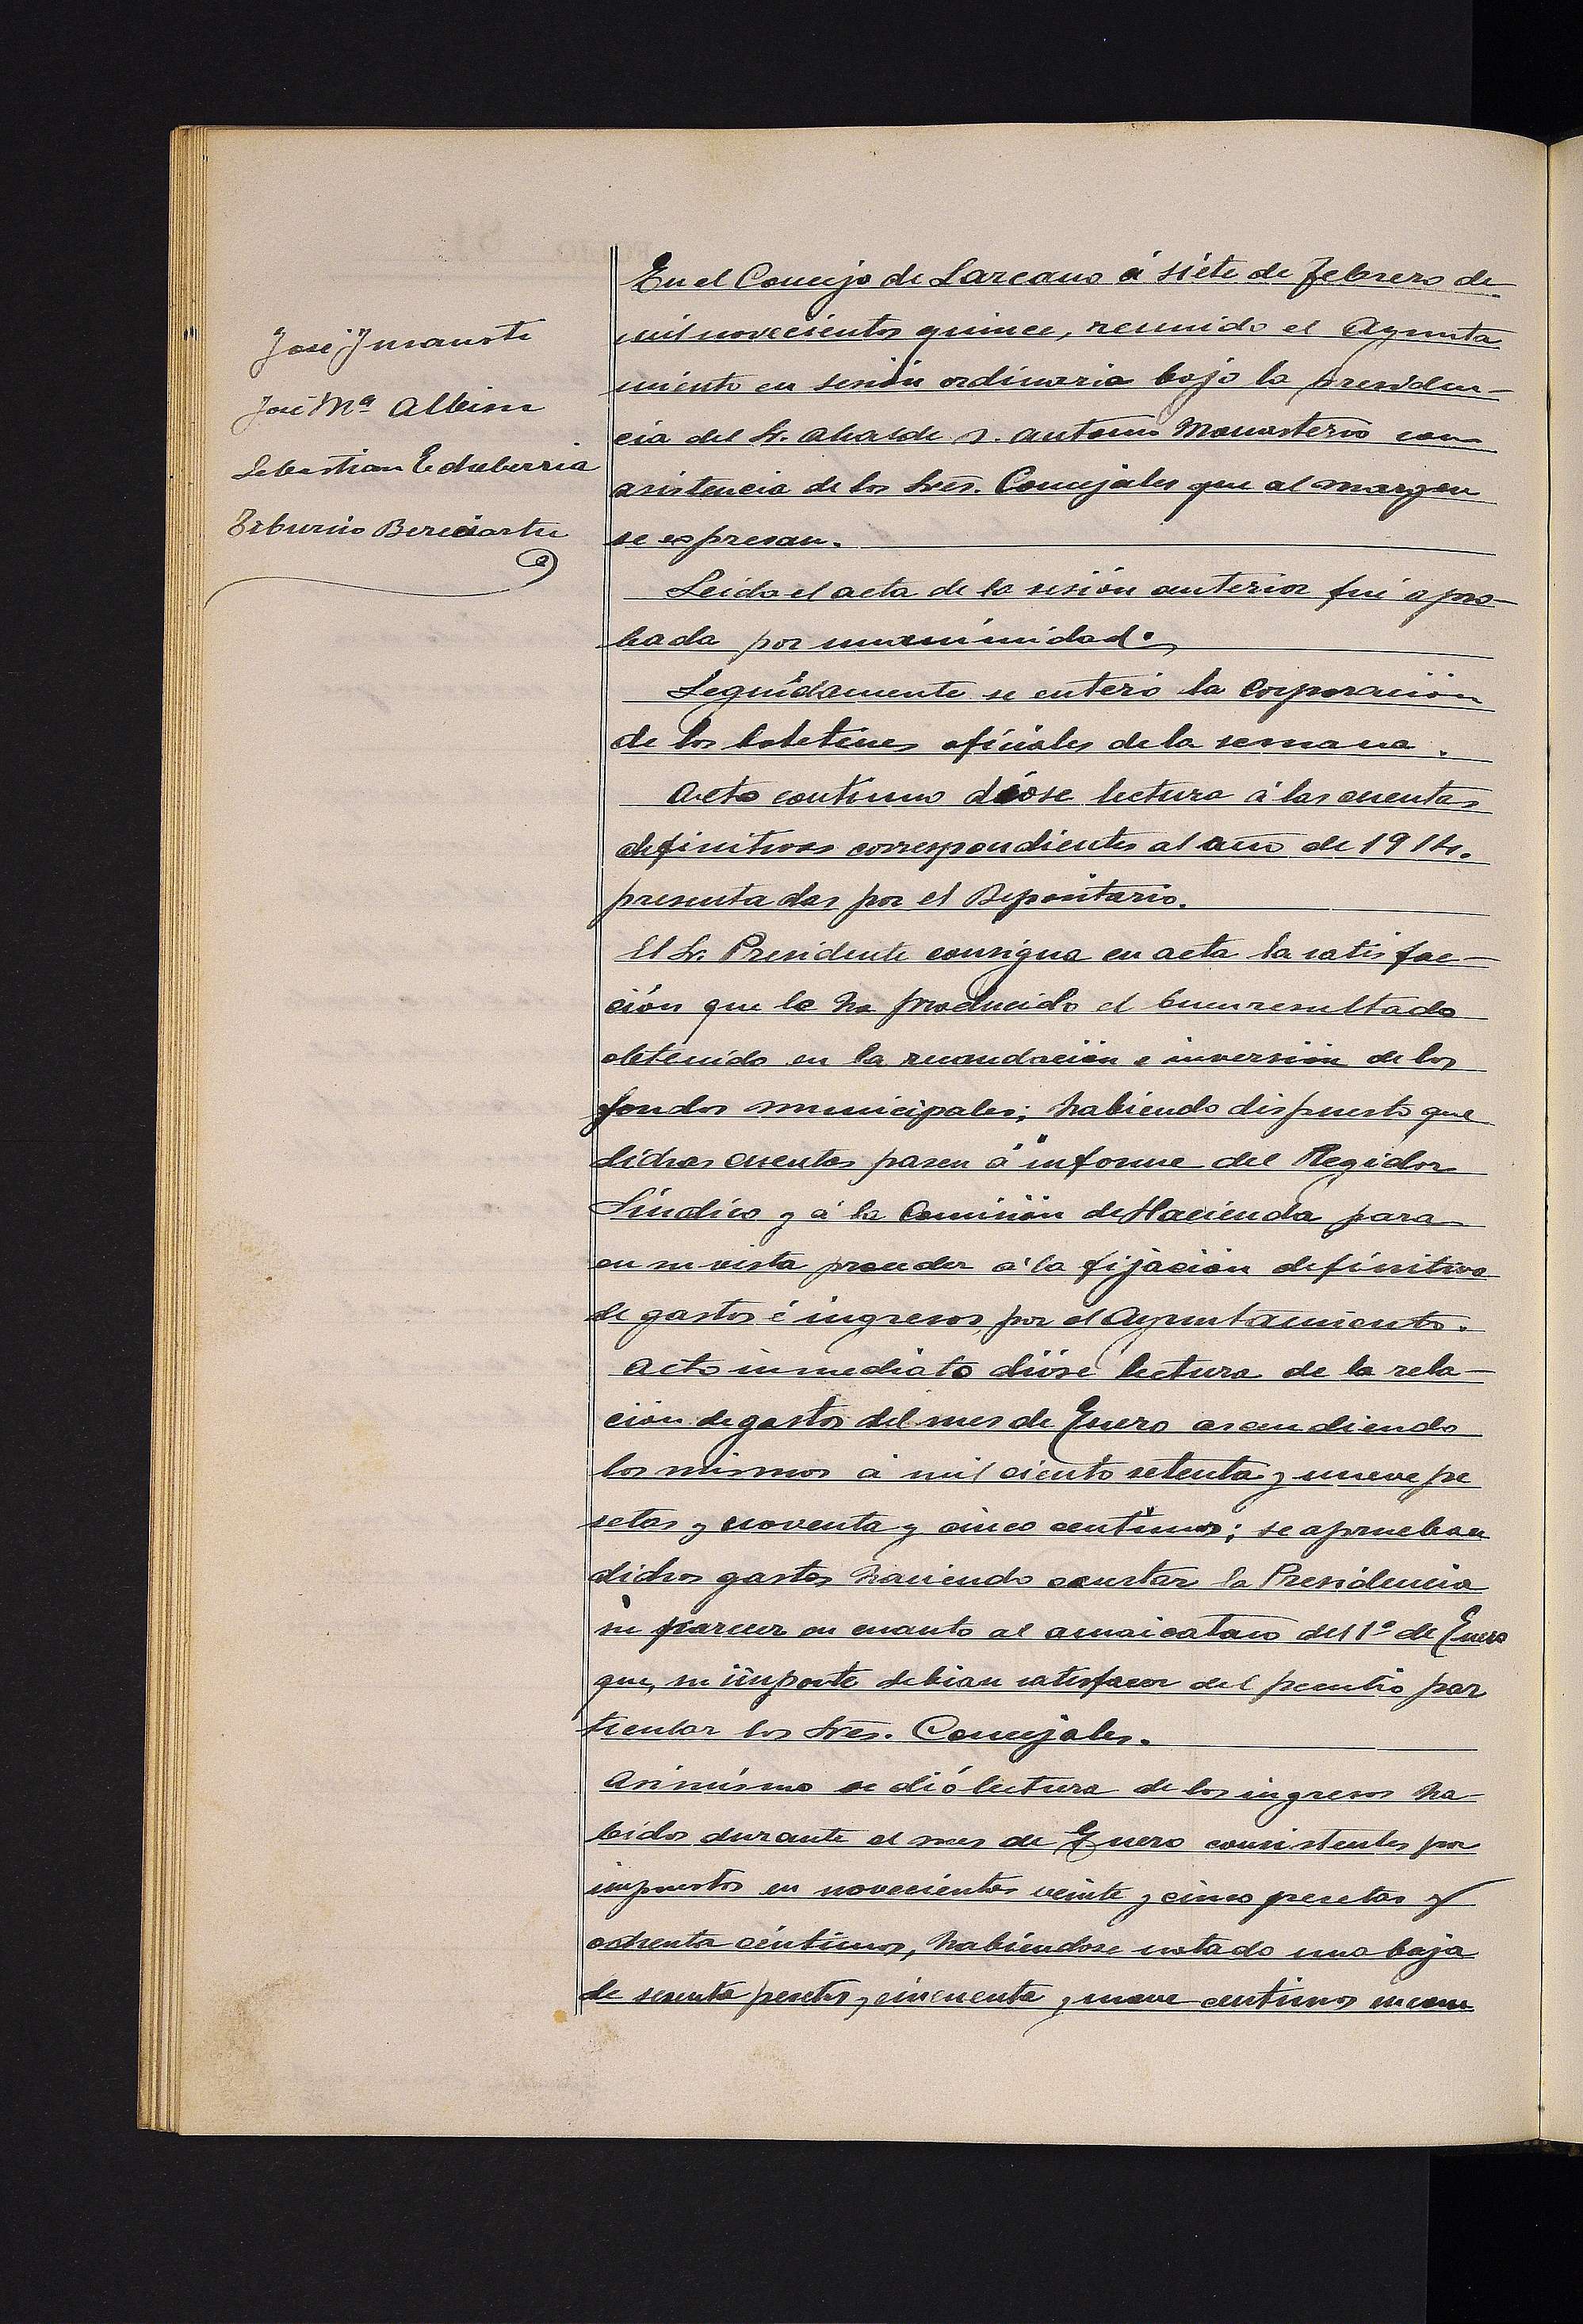 José Insausti
José Mª Albisu
Sebastian Echeberria
Tiburcio Bereciartu
En el Concejo de Lazcano á siete de Febrero de
mil novecientos quince, reunido el Ayunta
miento en sesión ordinaria bajo la presiden-
cia del Sr. Alcalde D. Antonio Monasterio con
asistencia de los Sres. Concejales que al margen
se espresan.
Leida el acta de la sesión anterior fué apro-
bada por unanimidad.
Seguidamente se enteró la Corporación
de los boletines oficiales de la semana.
Acto continuo dióse lectura á las cuentas
definitivas correspondientes al año de 1914.
presentadas por el Depositario.
El Sr. Presidente consigna en acta la satisfac-
ción que le ha producido el buen resultado
obtenido en la recaudación e inversión de los
fondos municipales; habiendo dispuesto que
dichas cuentas pasen á informe del Regidor
Síndico y á la Comisión de Hacienda para
en su vista proceder á la fijación definitiva
de gastos é ingresos por el Ayuntamiento.
Acto inmediato dióse lectura de la rela-
ción de gastos del mes de Enero ascendiendo
los mismos á mil ciento setenta y nueve pe
setas y noventa y cinco centimos; se aprueban
dichos gastos haciendo constar la Presidencia
su parecer en cuanto al amaicataco del 1º de Enero
que, su importe debian satisfacer del peculio par
ticular los Sres. Concejales.
Asimismo se dió lectura de los ingresos ha-
bidos durante el mes de Enero consistentes por
impuestos en novecientas veinte y cinco pesetas y
ochenta céntimos, habiendose notado una baja
de sesenta pesetas y cincuenta y nueve centimos en com